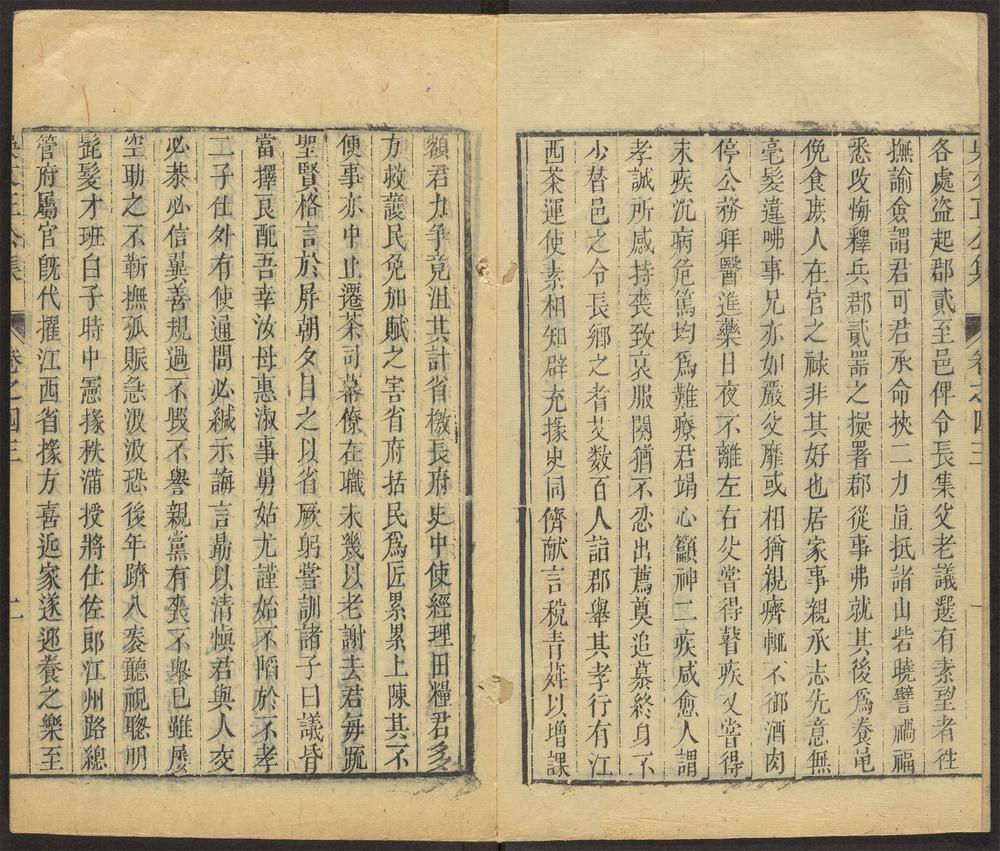 吳文正公集 卷之四三 一
各處盗起郡貳至邑俾令長集父老議選有素望者徃
撫諭僉謂君可君承命挾二力直抵諸山砦曉譬禍福
悉改悔釋兵郡貳噐之挼署郡從事弗就其後爲養黽
俛食庶人在官之禄非其好也居家事親承志先意無
毫髮違咈事兄亦如嚴父靡或相猶親癠輒不御酒肉
停公務拜醫進藥日夜不離左右父嘗得瞽疾又嘗得
末疾沉痾危篤均爲難療君竭心籲神二疾咸愈人謂
孝誠所感持喪致哀服闋猶不忍出薦奠追慕終身不
少替邑之令長鄉之耆艾数百人詣郡舉其孝行有江
西茶運使素相知辟充掾史同儕献言稅青莽以增課
額君力争竟沮其計省檄長府史中使經理田糧君多
方救護民免加賦之害省府括民爲匠累累上陳其不
便事亦中止遷茶司幕僚在職未幾以老謝去君每䟽
聖賢格言於屏朝夕目之以省厥躬甞訓諸子曰議昏
當擇良配吾幸汝母惠淑事舅姑尤謹始不陷於不孝
二子仕外有使通問必緘示誨言勗以清愼君與人交
必恭必信奬善規過不毀不譽親黨有喪不舉已雖屢
空助之不靳撫孤賑急汲汲恐後年躋八袠聽視聦明
髭髮才班白子時中憲掾秩滿授將仕佐郎江州路總
管府屬官旣代擢江西省掾方喜近家遂迎養之樂至
吳文正公集 卷之四三 二